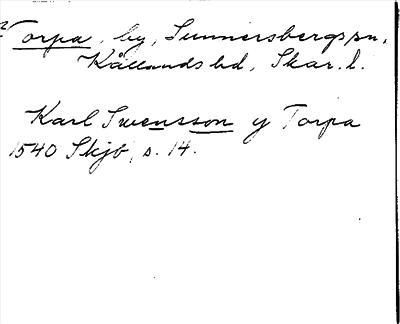 Torpa, by, Sunnersbergs sn,
Kållands hd, Skar. l.
Karl Swensson y Torpa
1540 Skjb, s. 14.